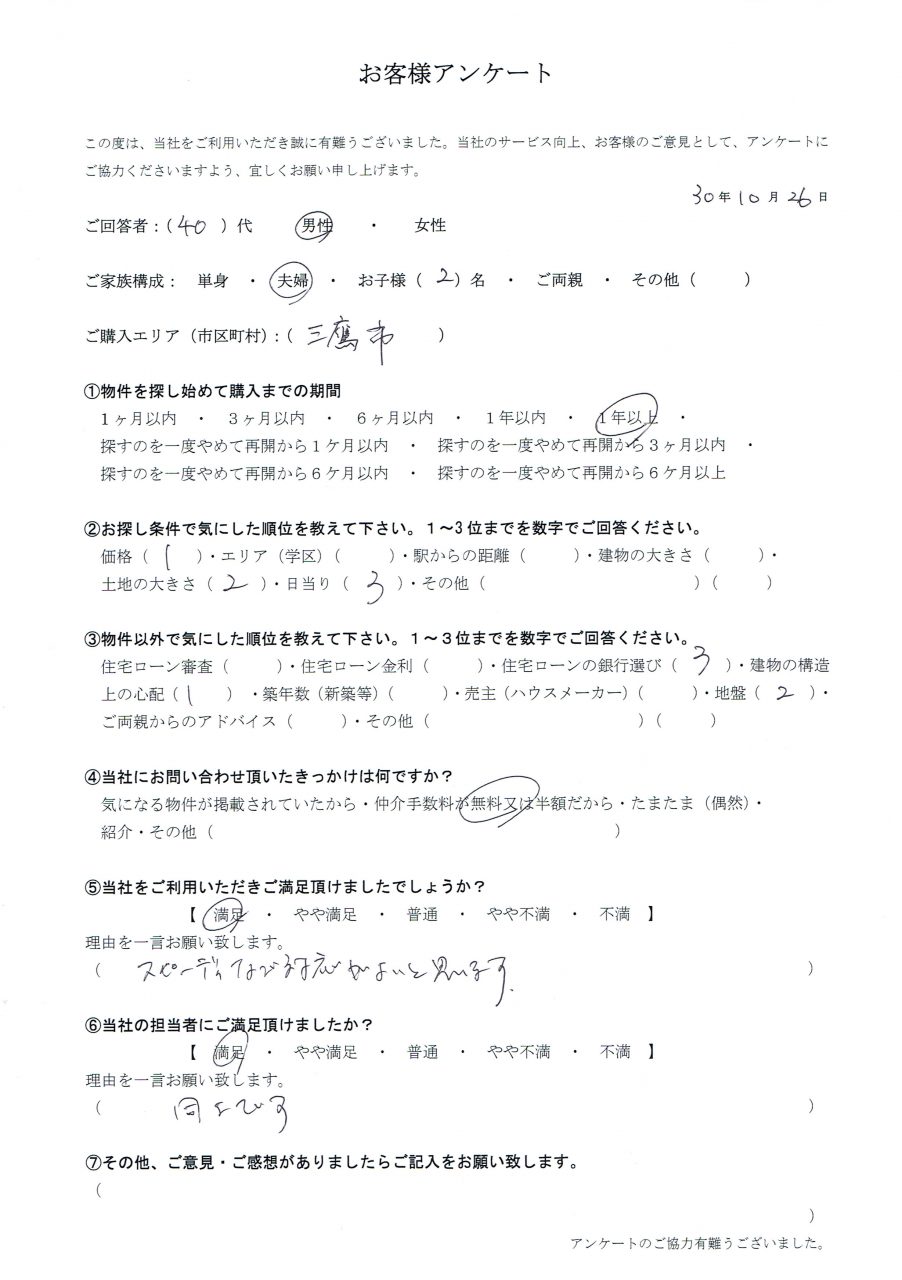 お客様アンケート
この度は、当社をご利用いただき誠に有難うございました。当社のサービス向上、お客様のご意見として、アンケートに
ご協力くださいますよう、宜しくお願い申し上げます。
30年10月26日
ご回答者：（40）代　男性　・　女性
ご家族構成：　単身　・　夫婦　・　お子様（2）名　・　ご両親　・　その他（　　）
ご購入エリア（市区町村）：（三鷹市）
①物件を探し始めて購入までの期間
１ヶ月以内　・　３ヶ月以内　・　６ヶ月以内　・　１年以内　・　１年以上　・
探すのを一度やめて再開から１ケ月以内　・　探すのを一度やめて再開から３ヶ月以内　・
探すのを一度やめて再開から６ケ月以内　・　探すのを一度やめて再開から６ケ月以上
②お探し条件で気にした順位を教えて下さい。１～3位までを数字でご回答ください。
価格（1）・エリア（学区）（　　）・駅からの距離（　　）・建物の大きさ（　　）・
土地の大きさ（2）・日当り（3）・その他（　　）（　　）
③物件以外で気にした順位を教えて下さい。１～３位までを数字でご回答ください。
住宅ローン審査（　　）・住宅ローン金利（　　）・住宅ローンの銀行選び（3）・建物の構造
上の心配（1）・築年数（新築等）（　　）・売主（ハウスメーカー）（　　）・地盤（2）・
ご両親からのアドバイス（　　）・その他（　　）（　　）
④当社にお問い合わせ頂いたきっかけは何ですか？
気になる物件が掲載されていたから・仲介手数料が無料又は半額だから・たまたま（偶然）・
紹介・その他（　　）
⑤当社をご利用いただきご満足頂けましたでしょうか？
【　満足　・　やや満足　・　普通　・　やや不満　・　不満　】
理由を一言お願い致します。
（スピーディな対応がよいと思います.）
⑥当社の担当者にご満足頂けましたか？
【　満足　・　やや満足　・　普通　・　やや不満　・　不満　】
理由を一言お願い致します。
（同上です）
⑦その他、ご意見・ご感想がありましたらご記入をお願い致します。
（
）
アンケートのご協力有難うございました。